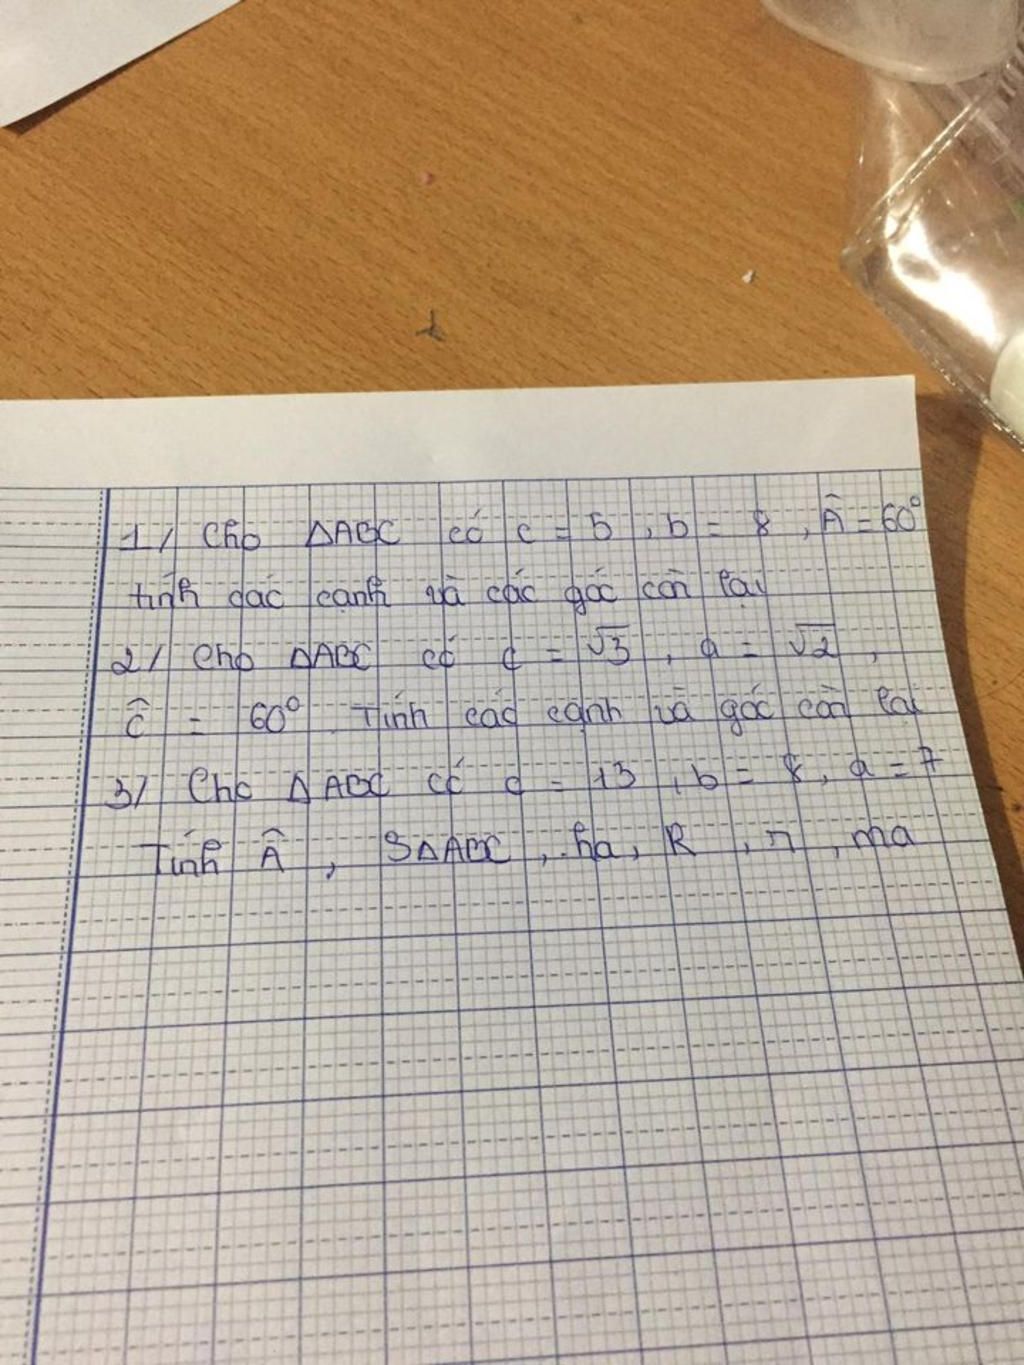 1/ Cho ΔABC có c = 5, b = 8, Â = 60°
tính các cạnh và các góc còn lại
2/ Cho ΔABC có c = √3, a = √2,
Ĉ = 60°. Tính các cạnh và góc còn lại
3/ Cho ΔABC có c = 13, b = 8, a = 7
Tính Â, SΔABC, ha, R, r, ma